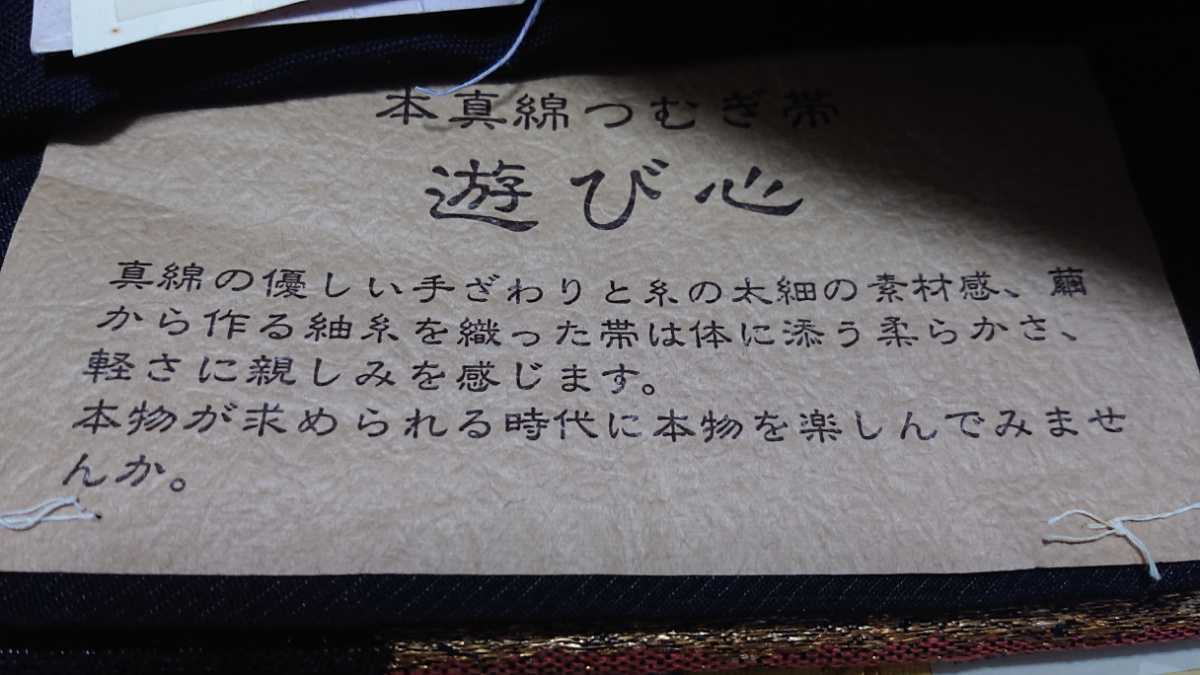 本真綿つむぎ帯
遊び心
真綿の優しい手ざわりと糸の太細の素材感、繭
から作る紬糸を織った帯は体に添う柔らかさ、
軽さに親しみを感じます。
本物が求められる時代に本物を楽しんでみませ
んか。